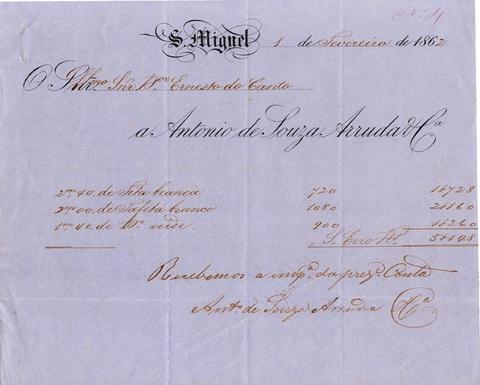 N. 4
S. Miguel 1 de Fevereiro de 1862
O Illmo. Snr. Dor. Ernesto do Canto
a Antonio de Souza Arruda & Ca
2m,40. de Fita branca 720 1$728
2m,00. de Tafetá branco 1080 2$160
1m,40 de Do. verde. 900 1$260
S. Erro Rs. 5$148
Recebemos a impa. da preze. Conta
Anto. de Souza Arruda & Ca